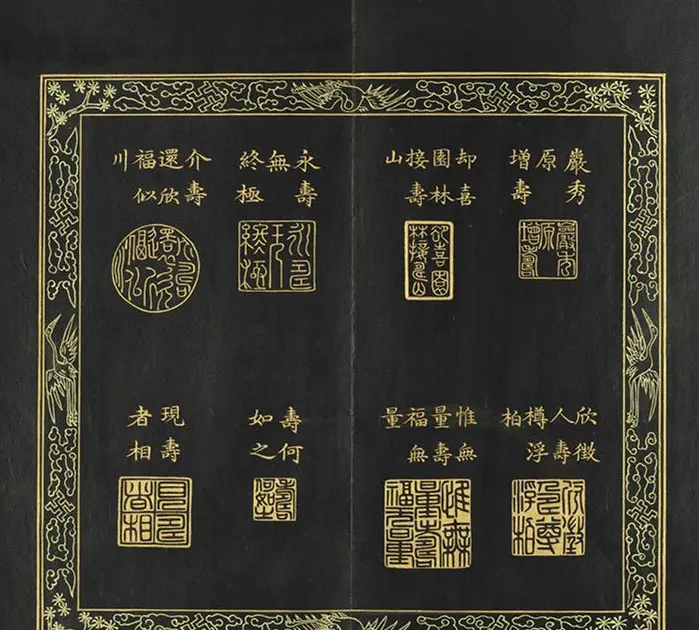 嚴秀
原
增壽
却喜
園林
接壽
山
永壽
無
終極
介壽
還欣
福似
川
欣徵
人壽
樽浮
柏
惟無
量壽
福無
量
壽何
如之
現壽
者相